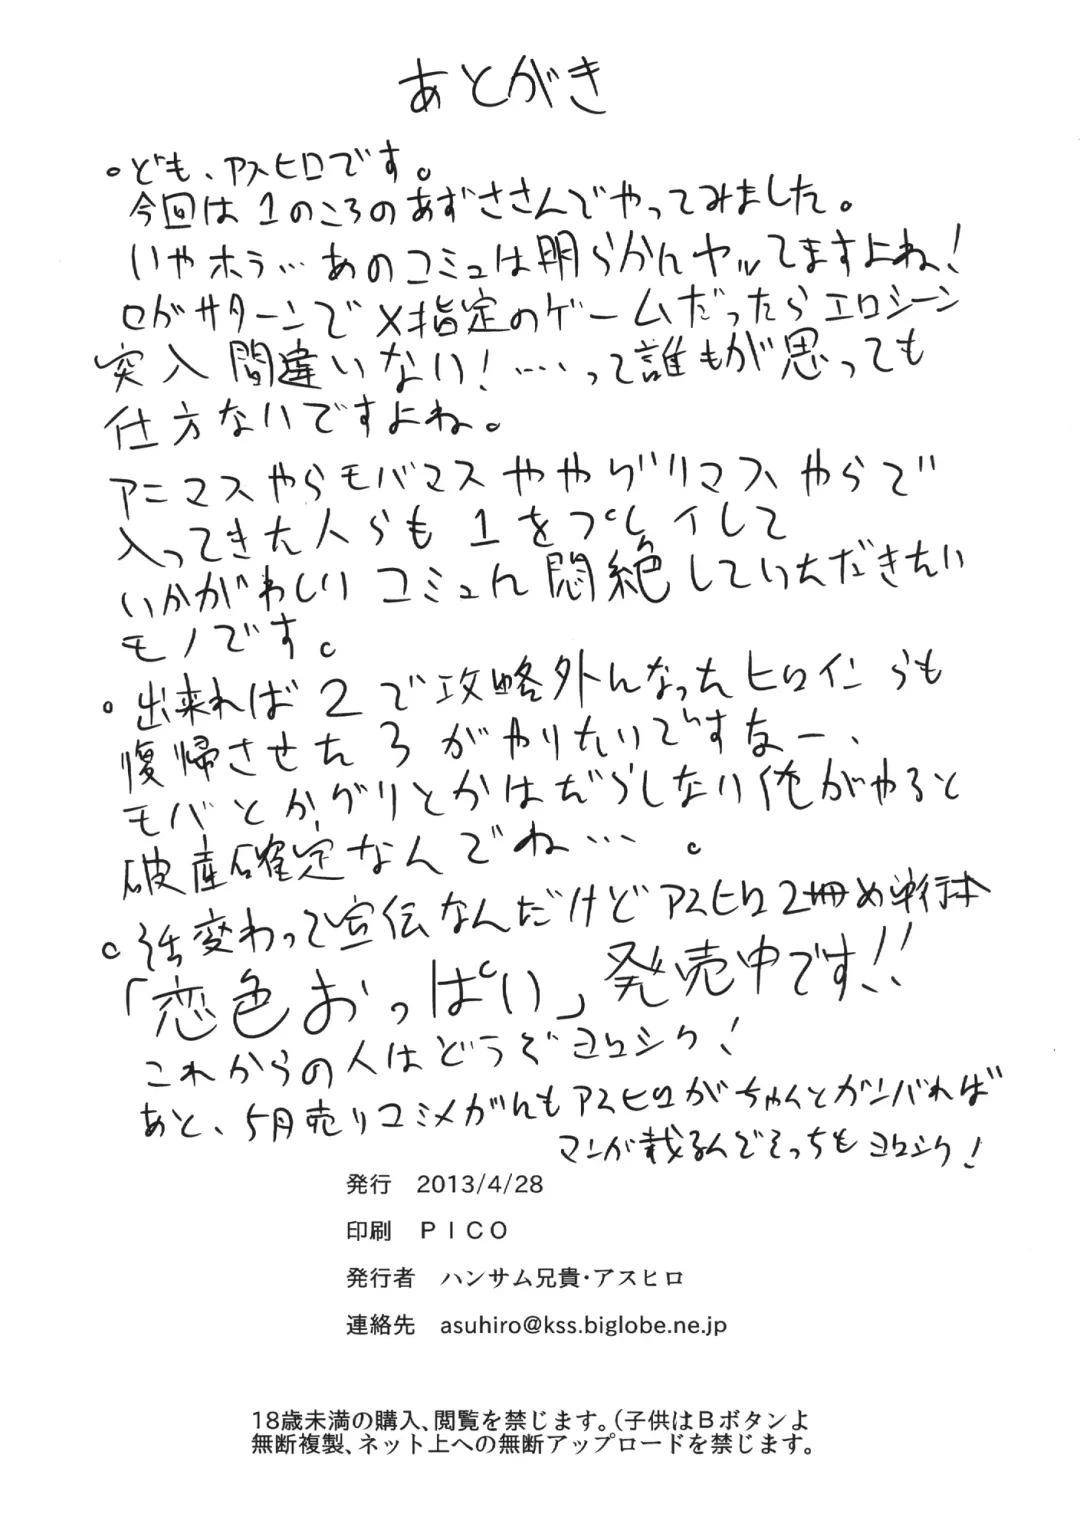 あとがき
・ども、アスヒロです。
今回は1のころのあずささんでやってみました。
いやホラ…あのコミュは明らかにヤッてますよね!
セガサターンでX指定のゲームだったらエロシーン
突入間違いない!…って誰もが思っても
仕方ないですよね。
アニマスやらモバマスややグリマスやらで
入ってきた人らも1をプレイして
いかがわしいコミュに悶絶していただきたい
モノです。
・出来れば2で攻略外になったヒロインらも
復帰させた3がやりたいですなー、
モバとかグリとかはだらしない俺がやると
破産確定なんでね…。
・話変わって宣伝なんだけどアスヒロ2冊め単行本
「恋色おっぱい」発売中です!!
これからの人はどうぞヨロシク!
あと、5月売りコミメガにもアスヒロがちゃんとガンバれば
マンガ載るんでそっちもヨロシク!
発行 2013/4/28
印刷 PICO
発行者 ハンサム兄貴・アスヒロ
連絡先 asuhiro@kss.biglobe.ne.jp
18歳未満の購入、閲覧を禁じます。(子供はBボタンよ
無断複製、ネット上への無断アップロードを禁じます。